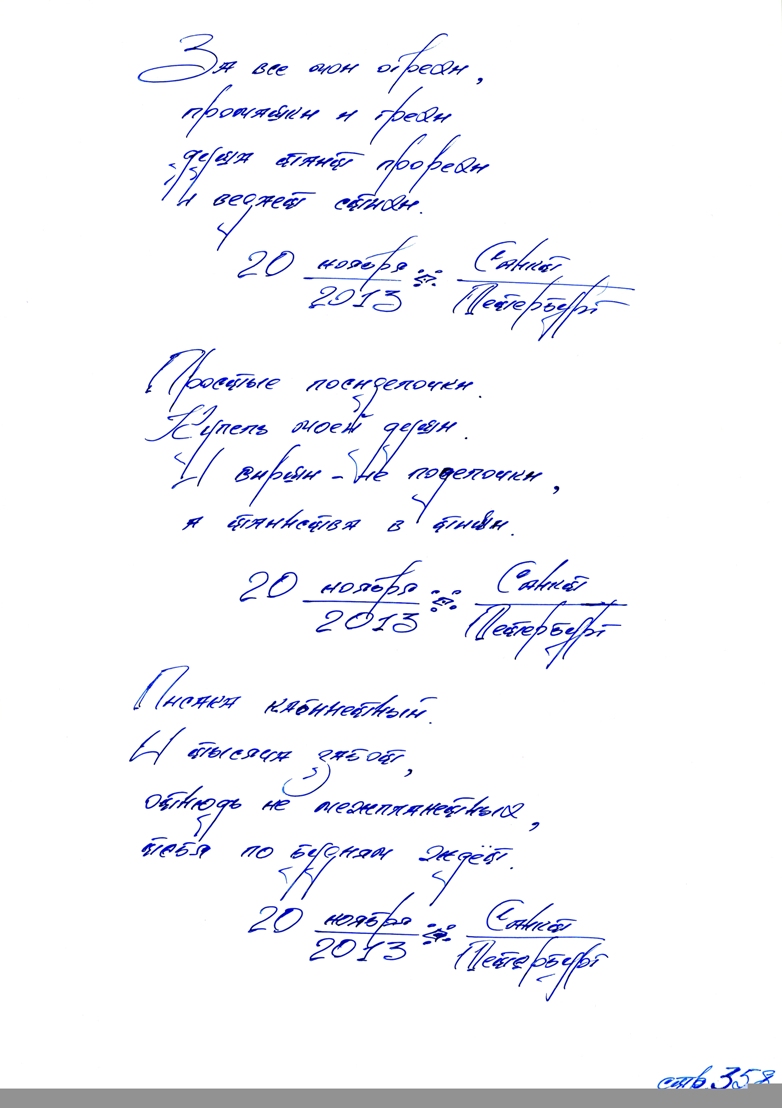 За все мои огрехи,
промашки и грехи
душа танцует прорехи
и ведает стихи.
20 ноября 2013 Санкт Петербург
Простые посиделочки.
Купель моей души.
И вирши - не поделочки,
а таинства в тиши.
20 ноября 2013 Санкт Петербург
Писака кабинетный.
И тысяча забот,
отнюдь не межпланетных,
тебя по будням ждёт.
20 ноября 2013 Санкт Петербург
стр. 358